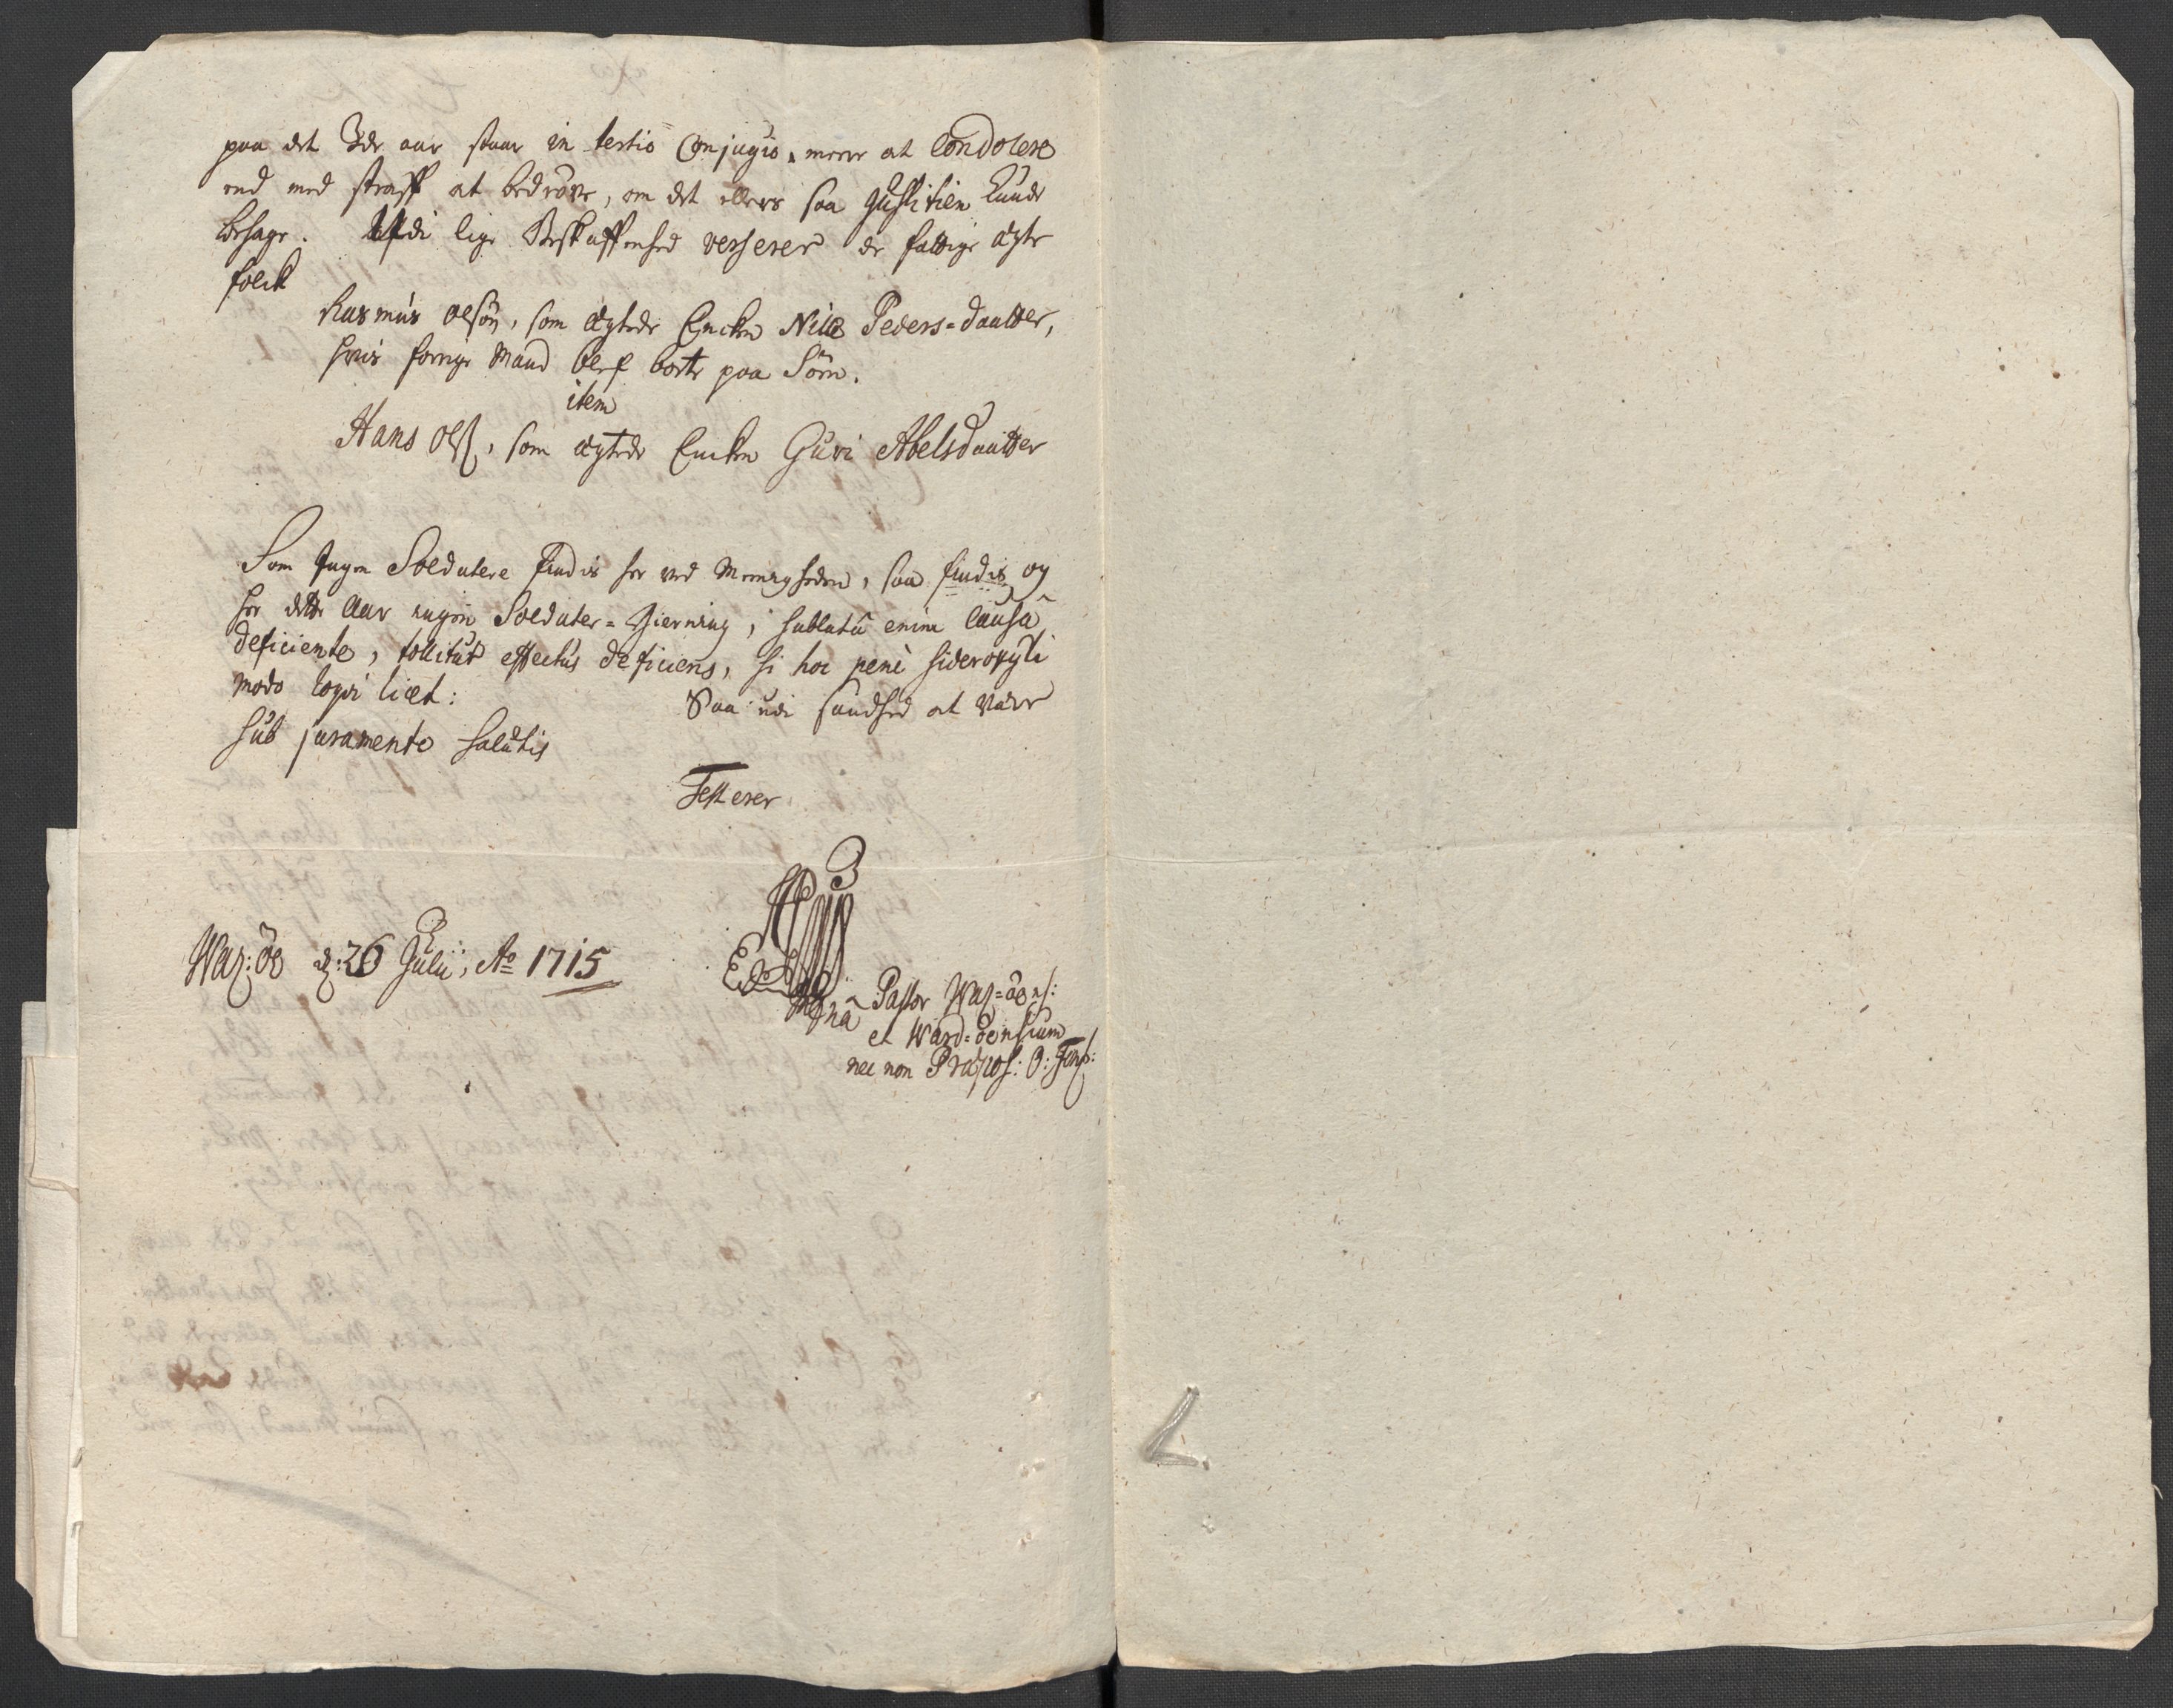 paa det 3de aar staar in tertio Conjugio, meere at Condolere
end med straff at bedrøve, om det ellers saa Justitien kunde
behage. Udi lige Beskaffenhed verserer de fattige ægte
folck
Rasmus Olsøn, som ægtede Encken Nille Peders-daatter,
hvis forrige Mand blef borte paa Søen.
item
Hans Ols:, som ægtede Encken Guri Abelsdaatter
Som Ingen Soldatere findis her ved Menigheden, saa findis og
her dette Aar ingen Soldater-Gierning; sublatâ enim Causâ
deficiente, tollitur effectus deficiens, si hoc penè sideroxyli
modo loqvi licet:
Saa udi sandhed at være
sub juramento salutis
Testerer
Waz:öe d: 26 Julii, Ao 1715
Pastor Waz=öens:
et Ward=öensium
nec non Præpos: O: Finm: